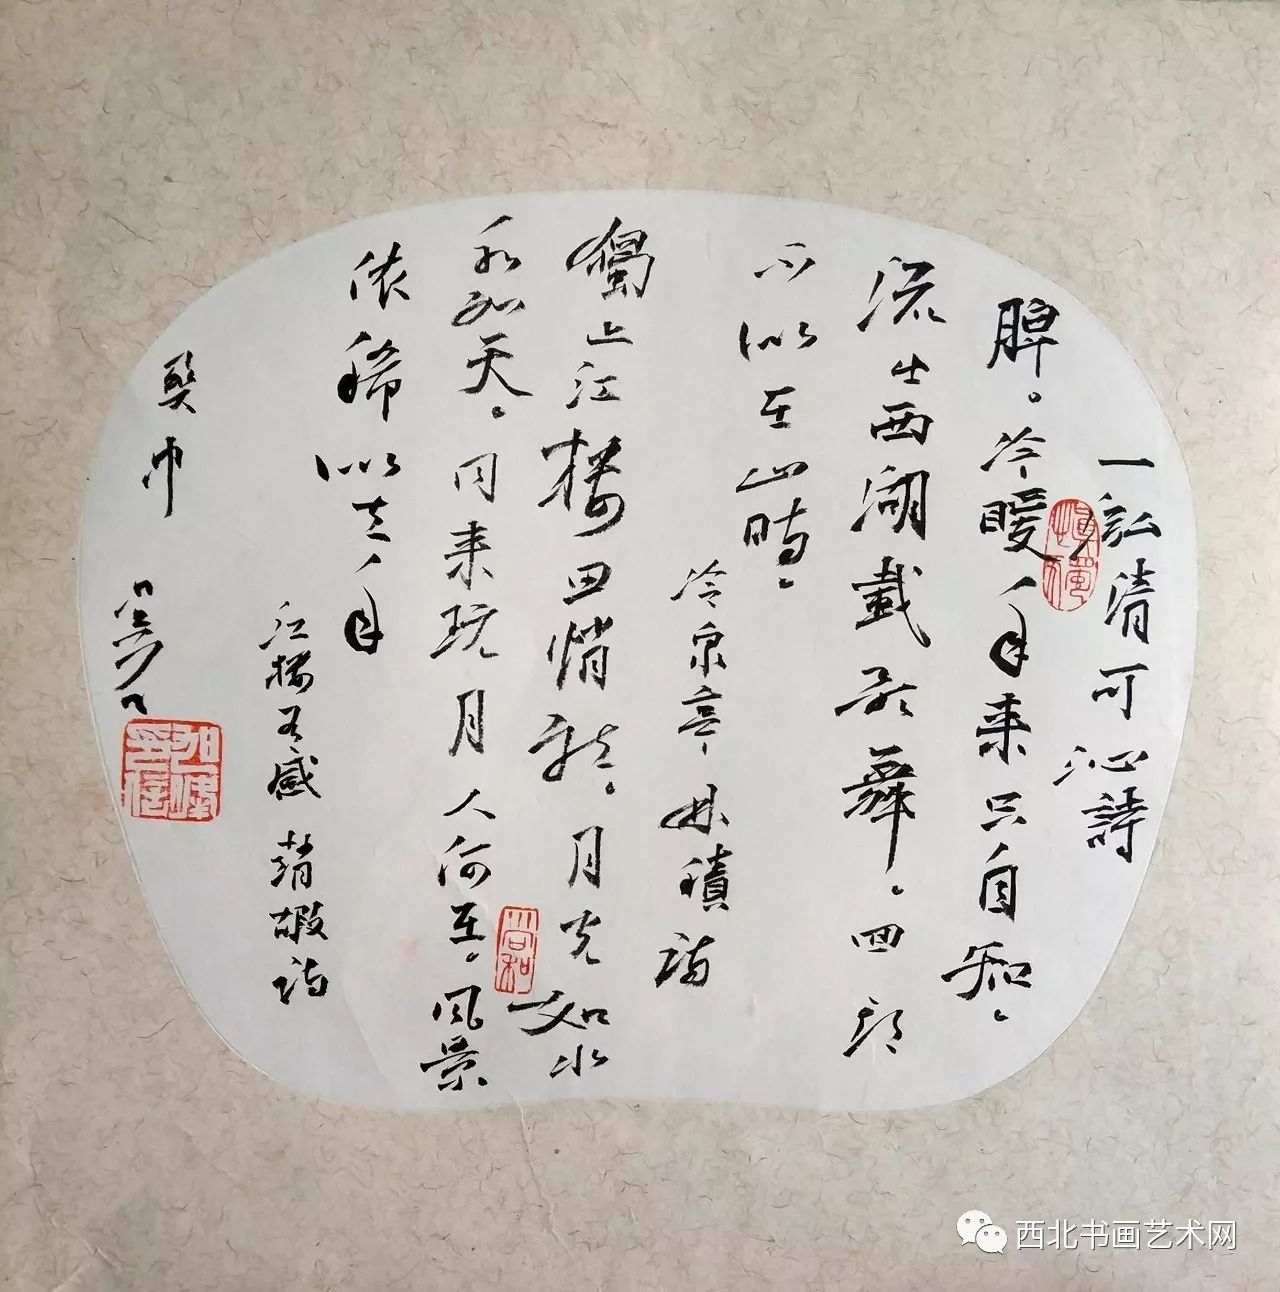 一泓清可沁詩
脾。冷暖年来只自知。
流出西湖載歌舞。回頭
不似在山時。
冷泉亭 林積詩
獨上江樓思悄然。月光如水
水如天。同来玩月人何在。風景
依稀似去年
江樓有感 趙嘏詩
癸巳
西北书画艺术网